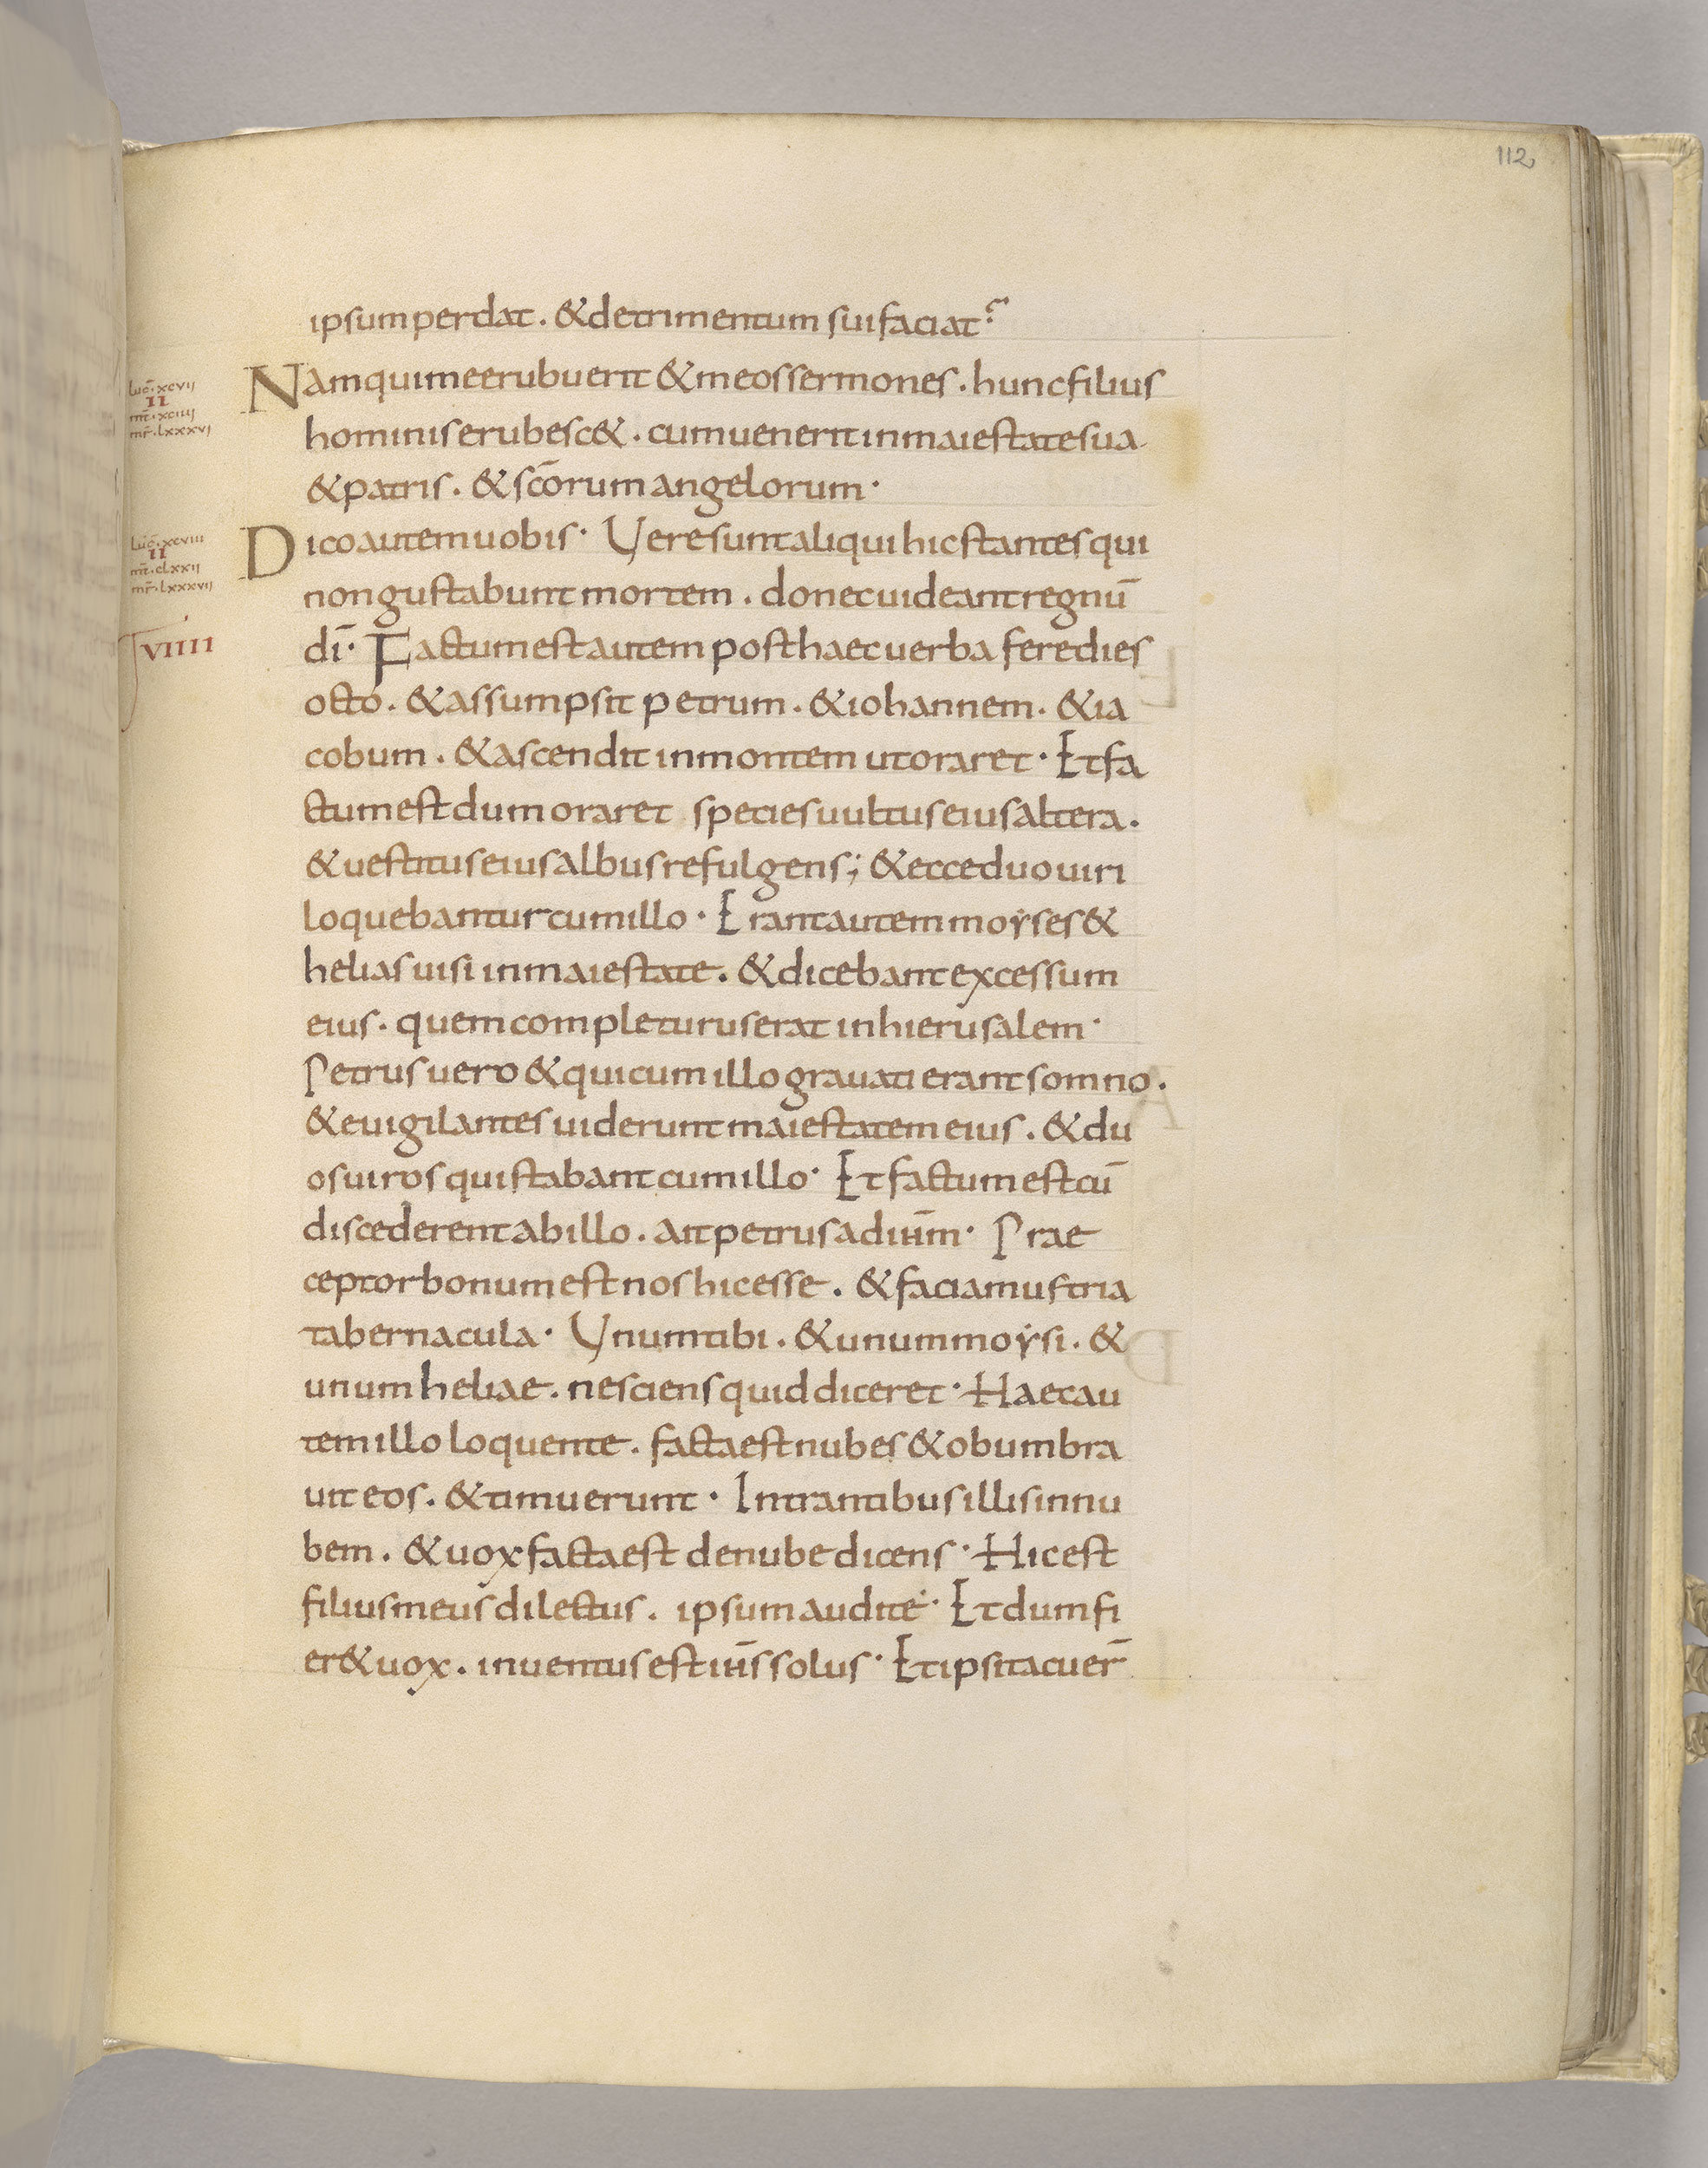 112
ipsum perdat . & detrimentum sui faciat ?
luc̄ · xcvii
II
mt̄ · xciiii
mr̄ · lxxxvi
Nam qui me erubuerit & meos sermones . hunc filius
hominis erubesc& . cum uenerit in maiestate sua
& patris . & sc̄orum angelorum ·
luc̄ · xcviii
II
mt̄ · clxxii
mr̄ · lxxxvii
Dico autem uobis · Vere sunt aliqui hic stantes qui
non gustabunt mortem . donec uideant regnū
VIIII
dī · Factum est autem post haec uerba fere dies
octo . & assumpsit petrum . & iohannem . & ia
cobum . & ascendit in montem ut oraret · Et fa
ctum est dum oraret species uultus eius altera .
& uestitus eius albus refulgens ; & ecce duo uiri
loquebantur cum illo · Erant autem moẏses &
helias uisi in maiestate . & dicebant excessum
eius . quem completurus erat in hierusalem ·
Petrus uero & qui cum illo grauati erant somno .
& euigilantes uiderunt maiestatem eius . & du
os uiros qui stabant cum illo · Et factum est cū
discederent ab illo . ait petrus ad ih̄m · Prae
ceptor bonum est nos hic esse . & faciamus tria
tabernacula · Vnum tibi . & unum moẏsi . &
unum heliae . nesciens quid diceret · Haec au
tem illo loquente . facta est nubes & obumbra
uit eos . & timuerunt · Intrantibus illis in nu
bem . & uox facta est de nube dicens · Hic est
filius meus dilectus . ipsum audite · Et dum fi
er& uox . inuentus est ih̄s solus · Et ipsi tacuer̄